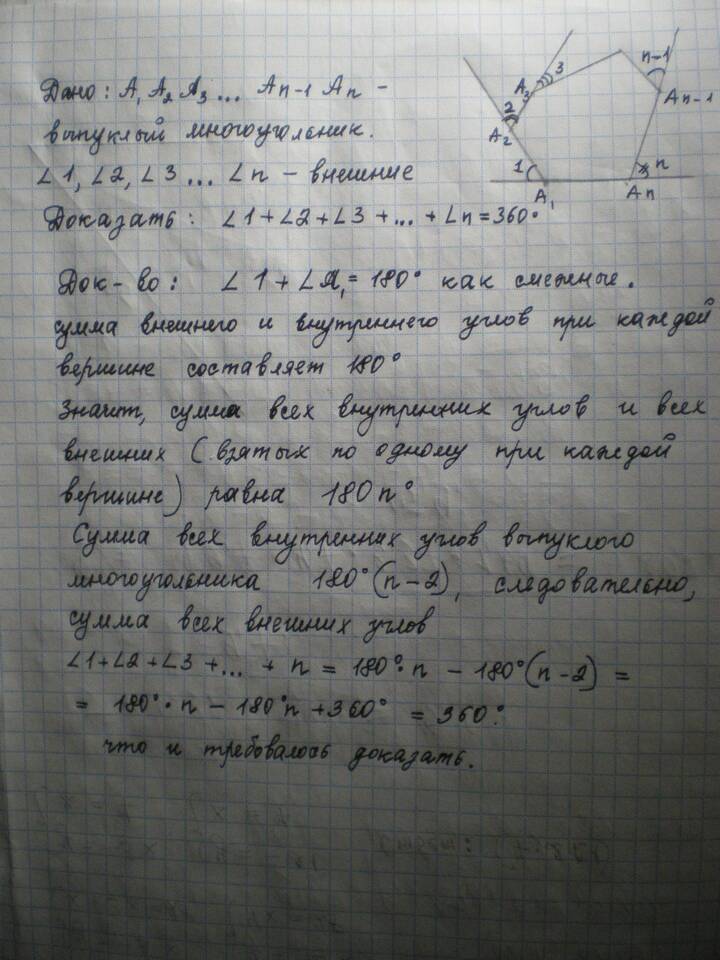 Дано: A₁ A₂ A₃ ... Aₙ₋₁ Aₙ -
выпуклый многоугольник.
∠1, ∠2, ∠3 ... ∠n - внешние
Доказать: ∠1+∠2+∠3+...+∠n=360°
1
2
3
n-1
n
A₁
A₂
A₃
Aₙ₋₁
Aₙ
Док-во: ∠1+∠A₁=180° как смежные.
сумма внешнего и внутреннего углов при каждой
вершине составляет 180°
Значит, сумма всех внутренних углов и всех
внешних (взятых по одному при каждой
вершине) равна 180n°
Сумма всех внутренних углов выпуклого
многоугольника 180°(n-2), следовательно,
сумма всех внешних углов
∠1+∠2+∠3+...+n = 180°·n - 180°(n-2) =
= 180°·n - 180°n + 360° = 360°.
что и требовалось доказать.